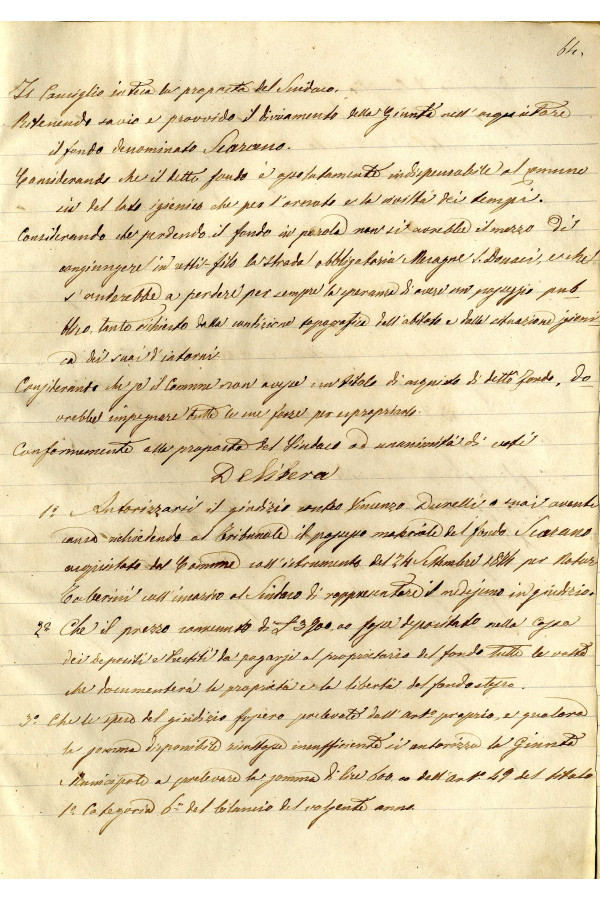 64.
Il Consiglio intesa la proposta del Sindaco.
Ritenendo savio e provvido il divisamento della Giunta nell'acquistare
il fondo denominato Scazano.
Considerando che il detto fondo è assolutamente indispensabile al comune
sia del lato igienico che per l'ornato e la civiltà dei tempi.
Considerando che perdendo il fondo in parola non si avrebbe il mezzo di
congiungere in retti-filo la strada obbligatoria Mesagne S. Donaci, e che
s'anderebbe a perdere per sempre la speranza di avere un passeggio pub
blico, tanto richiesto dalla condizione topografica dell'abitato e dalla situazione igieni
ca dei suoi d'intorni.
Considerando che se il Comune non avesse un titolo di acquisto di detto fondo, do
vrebbe impegnare tutte le sue forze per espropriarlo.
Conformemente alla proposta del Sindaco ad unanimità di voti
Delibera
1º Autorizzarsi il giudizio contro Vincenzo o suoi aventi
causa richiedendo al Tribunale il possesso materiale del fondo Scazano
acquistato dal Comune coll'istrumento del 24 Settembre 1884 per Notar
coll'incarico al Sindaco di rappresentare il medesimo in giudizio.
2º Che il prezzo convenuto di £ 3900.00 fosse depositato nella Cassa
dei depositi e Prestiti da pagarsi al proprietario del fondo tutte le volte
che documenterà la proprietà e la libertà del fondo stesso.
3º Che le spese del giudizio fossero prelevate dall'artº proprio, e qualora
la somma disponibile risultasse insufficiente si autorizza la Giunta
Municipale a prelevare la somma di lire 600.00 dall'Artº 49 del titolo
1º Categoria 6ª del bilancio del volgente anno.